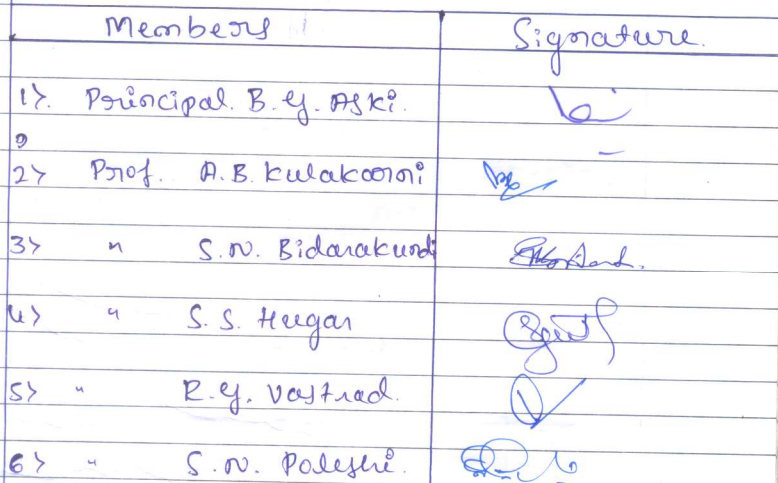 Members Signature.
1>. Principal. B. G. Aski.
2> Prof. A.B. Kulakarni
3> " S.N. Bidarakundi
4> " S. S. Hugar
5> " R.G. Vastrad.
6> " S.N. Poleshi.